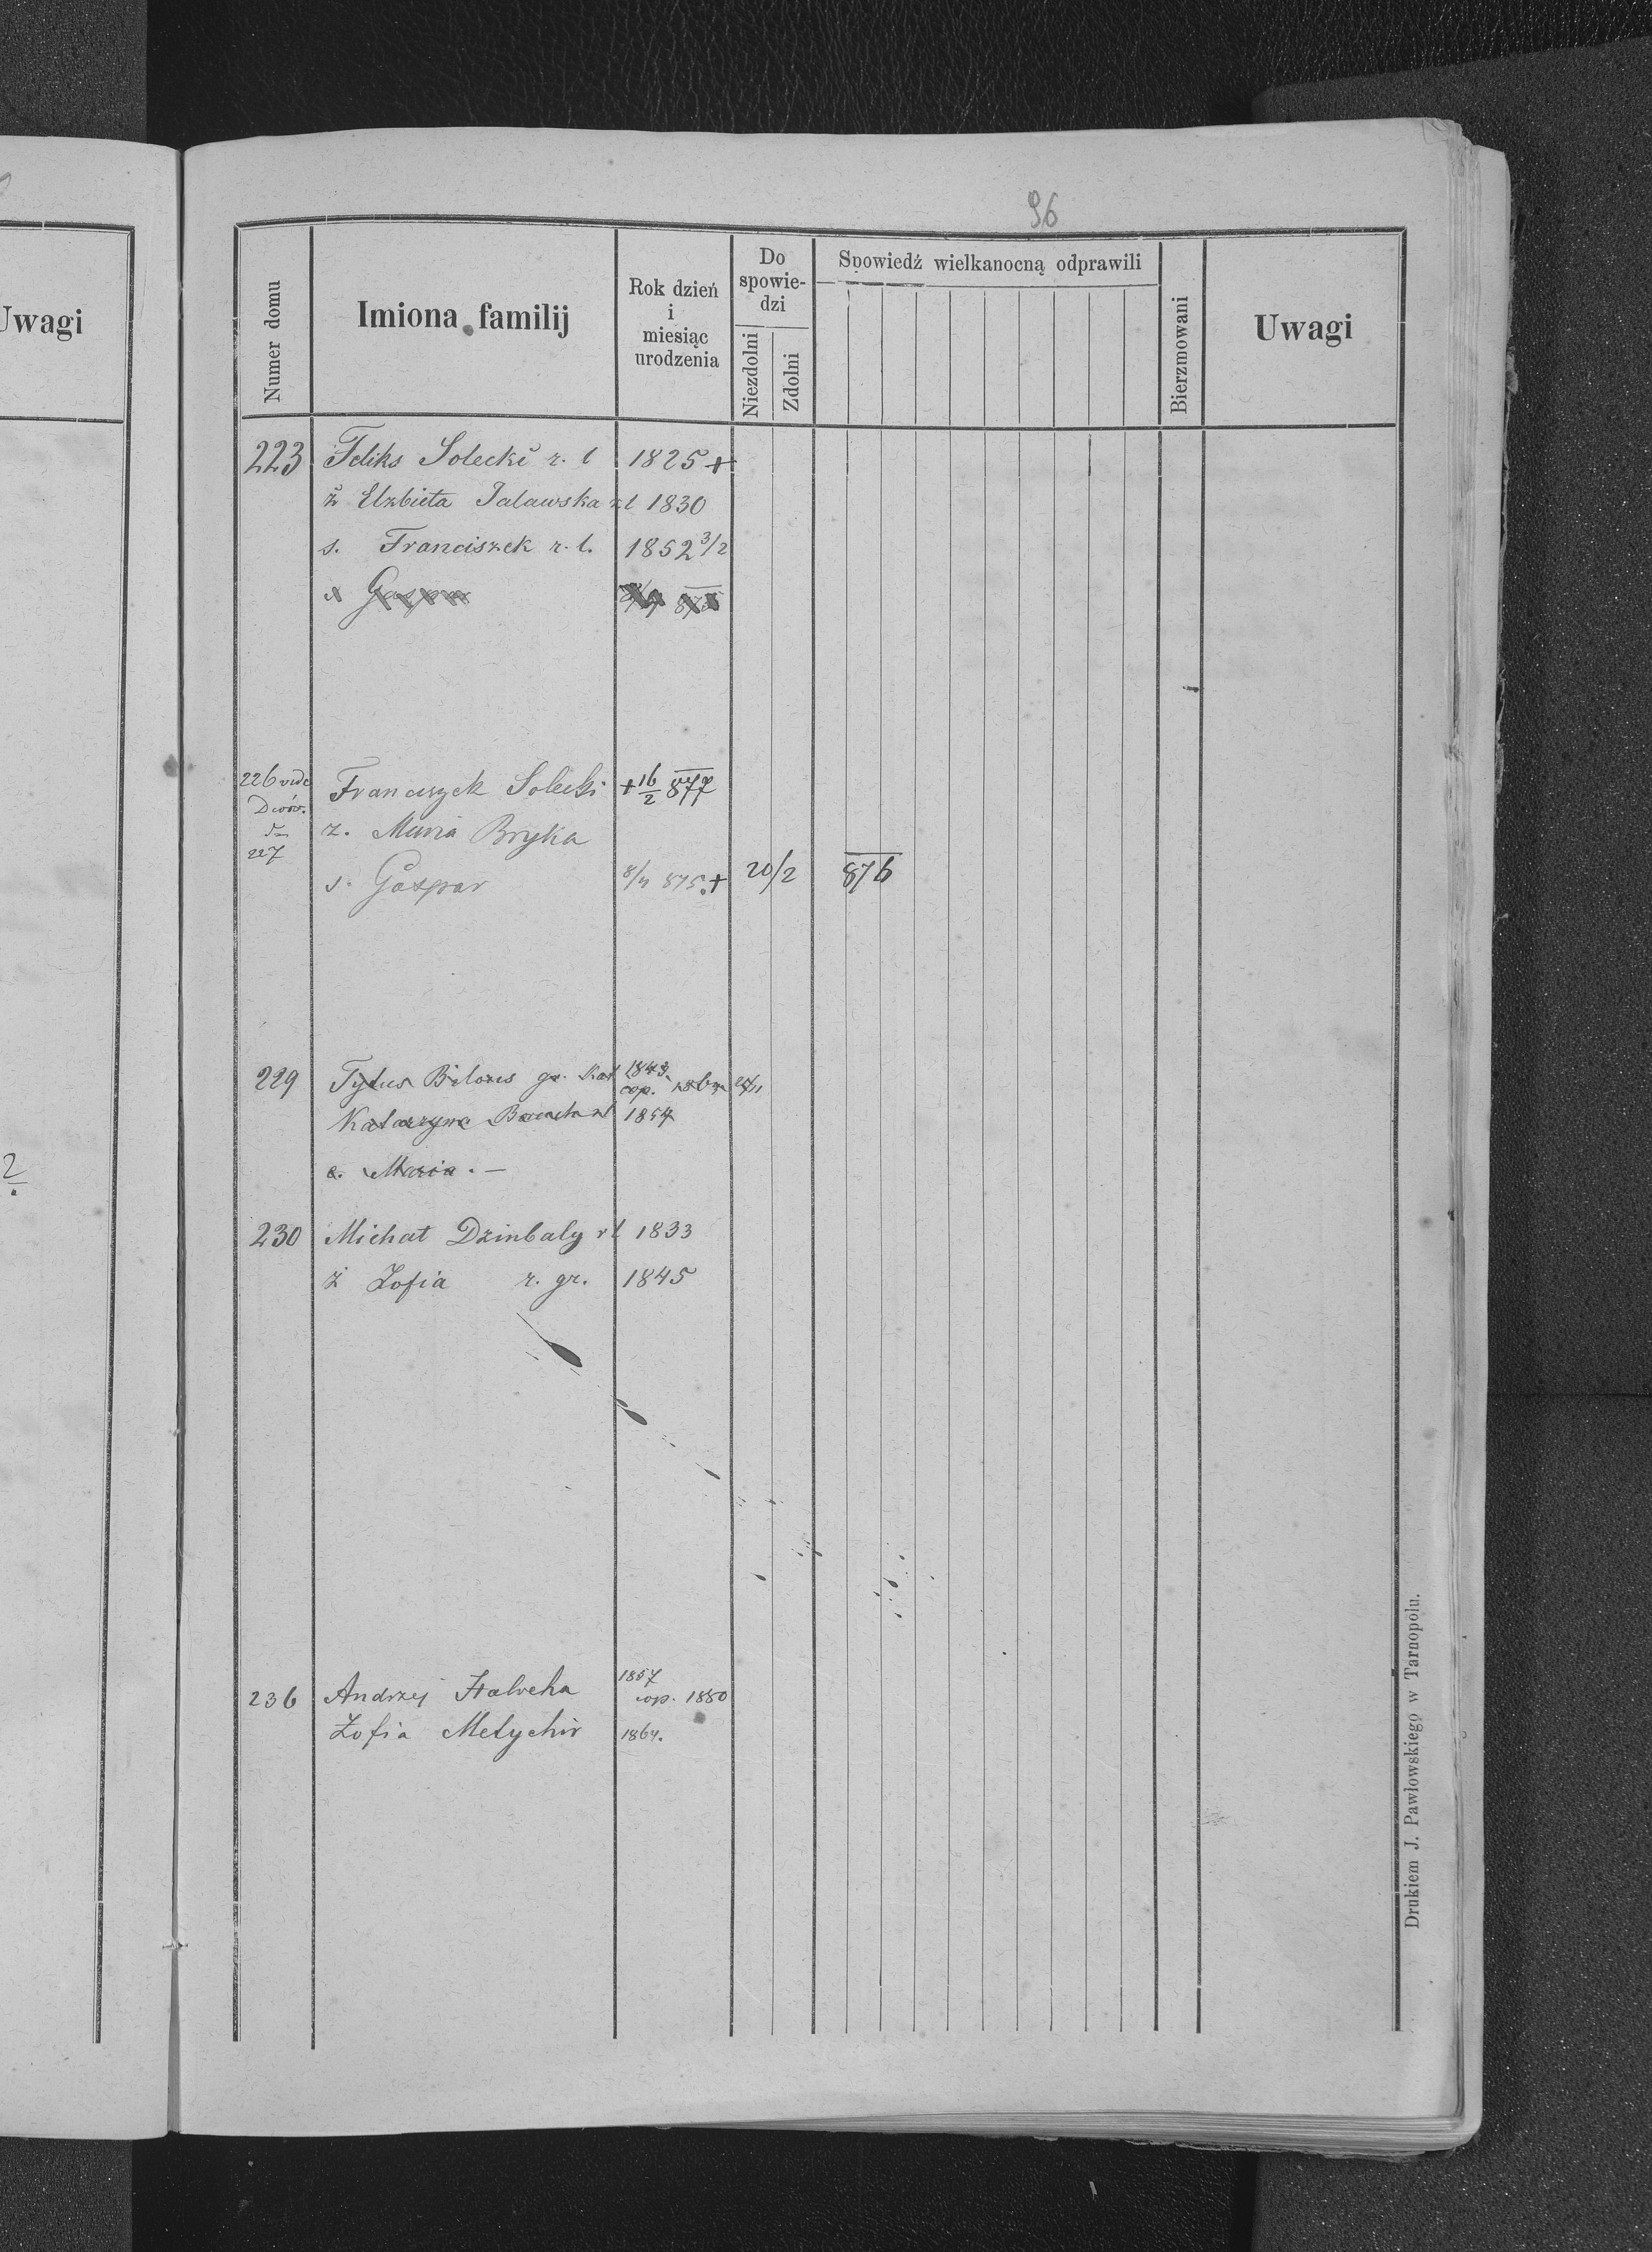 96
Uwagi
Numer domu
Imiona familij
Rok dzień
i
miesiąc
urodzenia
Do
spowie-
dzi
Niezdolni
Zdolni
Spowiedź wielkanocną odprawili
Bierzmowani
Uwagi
223 Feliks Solecki r. l 1825 +
ż Elzbieta Jalawska r l 1830
s. Franciszek r. l. 1852 3/2
s Gaspar 875
226 vide Franciszek Solecki + 16/2 877
Dwór.
227 z. Maria Bryka
s. Gaspar 8/4 875. + 20/2 876
229 Tytus Bilous gr. Kat 1843
cop.
Katarzyna 1854
c. Maria. —
2
230 Michał Dzinbaly r l 1833
ż Zofia r. gr. 1845
236 Andrzej 1857
cop. 1880
Zofia Metychir 1864.
Drukiem J. Pawłowskiego w Tarnopolu.